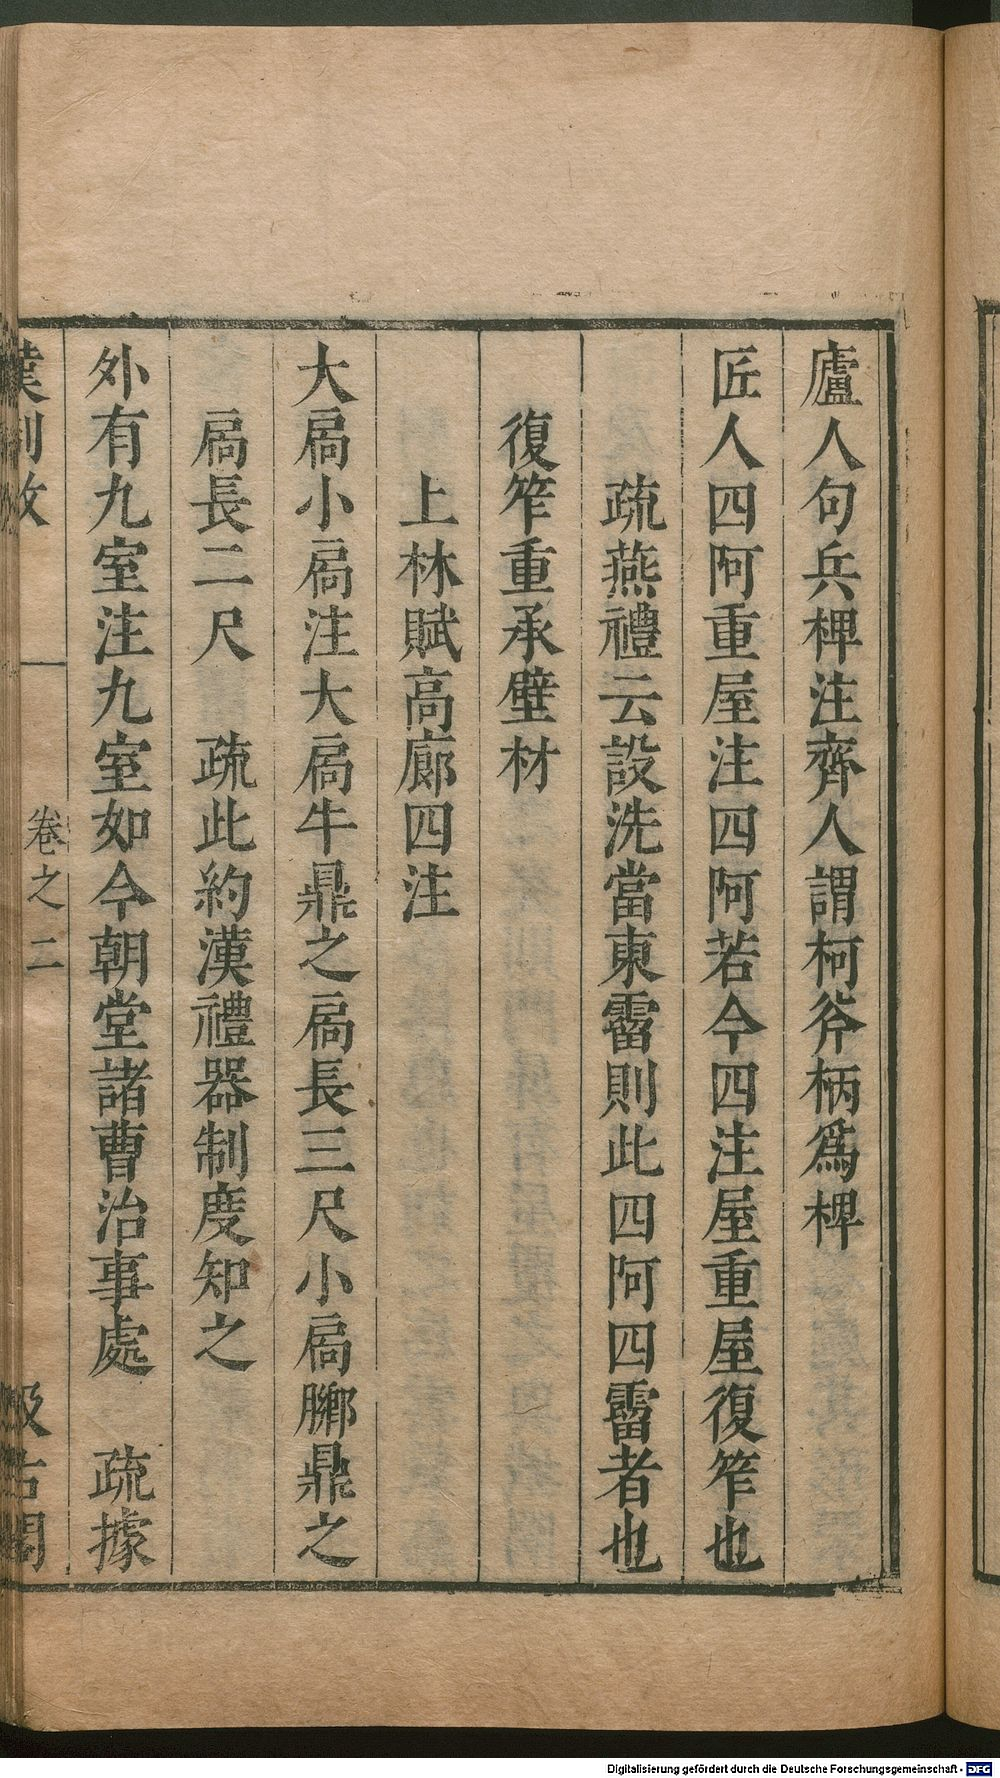 廬人句兵椑注齊人謂柯斧柄爲椑
匠人四阿重屋注四阿若今四注屋重屋復笮也
疏燕禮云設洗當東霤則此四阿四霤者也
復笮重承壁材
上林賦高廊四注
大扃小扃注大扃牛鼎之扃長三尺小扃膷鼎之
扃長二尺　疏此約漢禮器制度知之
外有九室注九室如今朝堂諸曹治事處　疏據
漢制攷　卷之二　汲古閣
Digitalisierung gefördert durch die Deutsche Forschungsgemeinschaft - DFG